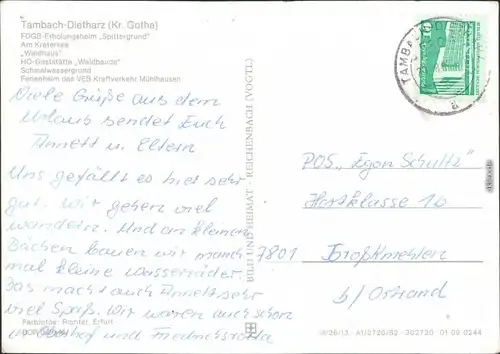 Tambach-Dietharz (Kr. Gotha)
FDGB-Erholungsheim „Spittergrund"
Am Kratersee
„Waldhaus"
HO-Gaststätte „Waldbaude"
Schmalwassergrund
Ferienheim des VEB Kraftverkehr Mühlhausen
Viele Grüße aus dem
Urlaub sendet Euch
Annett u. Eltern
Uns gefällt es hier sehr
gut. Wir gehen viel
wandern. Und an kleinen
Bächen bauen wir manch
mal kleine Wasserräder
Das macht auch Annett sehr
viel Spaß. Wir waren auch schon
in Oberhof und Friedrichroda
Farbfotos: Richter, Erfurt
BILD UND HEIMAT · REICHENBACH (VOGTL)
TAMBACH
a
10
POS „Egon Schultz"
Hortklasse 1b
7801 Großkmehlen
b/ Ortrand
A1/2720/82 302720 01 09 0244